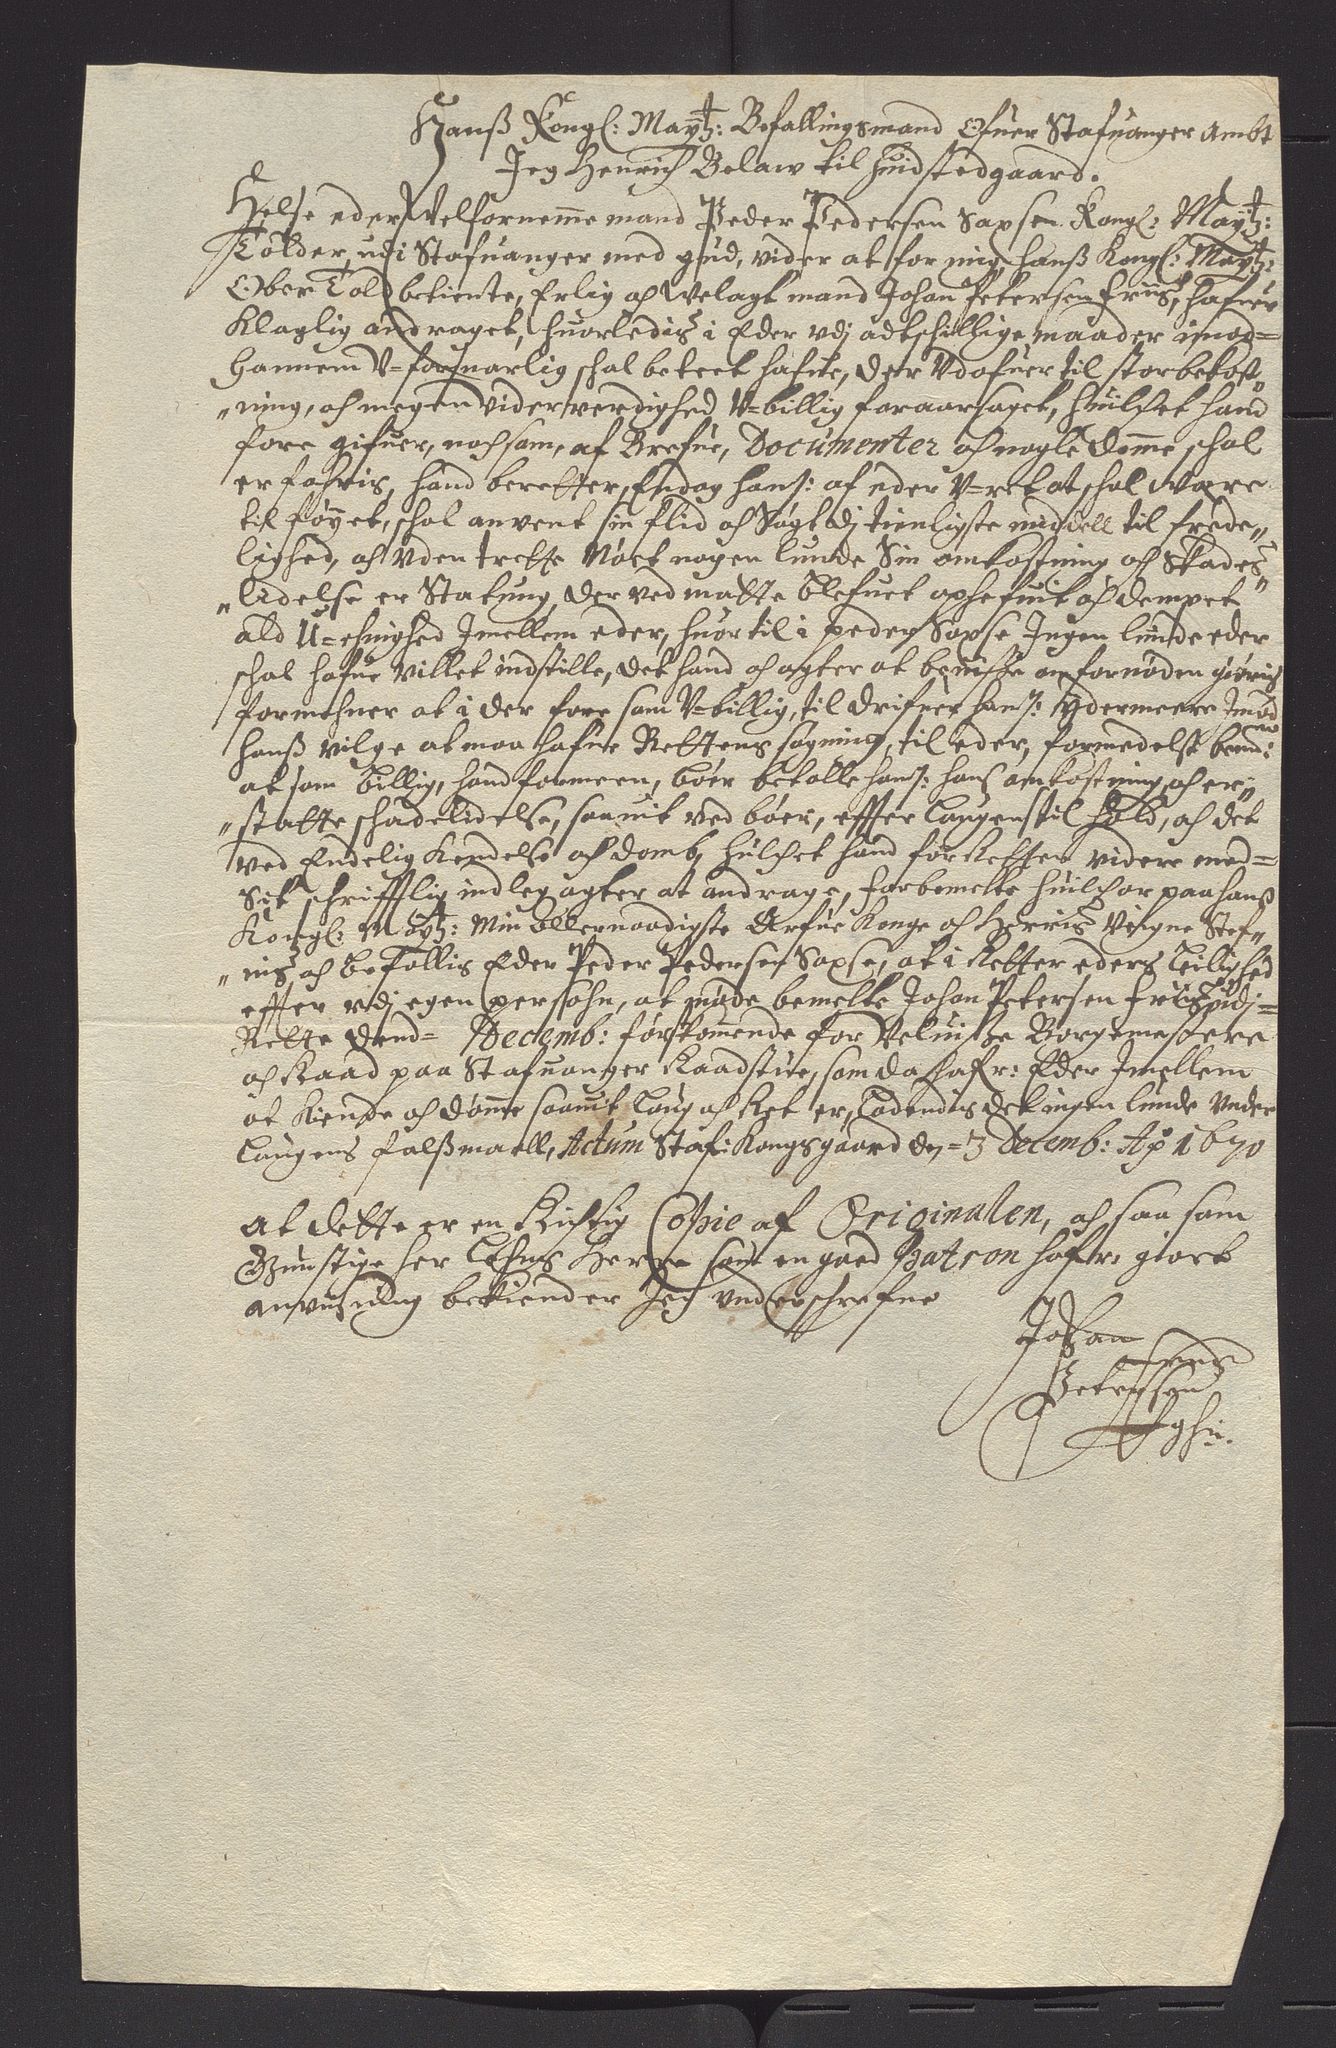 Hanß Kongl: Maytz: Befallingsmand Ofuer Stafuanger Ambt
Jeg Henrich Belaw til Huidstedgaard.
Helse eder Welfornemme mand Peder Pedersen Saxse Kongl: Maytz:
Tolder udi Stafuanger med gud, vider at for mig, hanß Kongl: Maytz:
Ober Told betiente, Erlig och Welagt mand Johan Petersen Friis, hafuer
Klaglig andraget, huorledis i Eder vdj adtschillige maader imod=
hannem V-forsuarlig schal beteet hafue, der Vdofuer til stor bekost
"ning, och megen viderverdighed V-billig foraarsaget, huilchet hand
fore gifuer, nochsom, af Brefue, Documenter och nogle domme, schal
erfahris, hand beretter, Endog hans: af eder V-ret at schal were
til føyet, schal anvent sin flid och Søgt dj tienligste middell til frede"
lighed, och Vden trette Nøet nogen lunde Sin omkostning och Skades
"lidelse er Statning, der ved matte blefuet ophefuit och dempet
ald U=ehnighed Jmellem eder, huor til i peder Saxse Jngen lunde eder
schal hafue villet indstille, det hand och agter at beuisse om fornøden giøris
formehner at i der fore som V-billig, til drifuer hans: ydermeere Jmod
hanß vilge at maa hafue Rettens søgning, til eder, formedelst
at som billig, hand formeen, bøer betalle hans: hans omkostning, och er"
"statte schadelidelse, saauit ved bøer, effter Laugens til hold, och det
ved Endelig Kendelse och domb, huilchet hand for Retten videre med=
Sit schrifftlig indleg agter at andrage, forbemelte huilchor paa hanß
Kongl: Maytz: Min allernaadigste Arfue Konge och Herris Veigne Stef"
"nis och befallis Eder Peder Pedersen Saxse, at i Retter eders leilighed
effter vdj egen persohn, at møde bemelte Johan Petersen Friis udj=
Rette dend= Decemb: førstkommende for Veluise Borgemestere
och Raad paa Stafuanger Raadstue, som da hafr: Eder Jmellem
at Kiende och dømme saauit Laug och Ret er, ladendis det ingen lunde Vnder
Laugens falßmaell, Actum Staf: Kongsgaard dj=3 Decemb: Ao 1670
At dette er en Richtig Copie af Originalen, och saa som
Gunstige her Lehns Herre som en goed Patron hafr: giort
anvisning bekiender Jeg vnderschrefne
Johan
Petersen